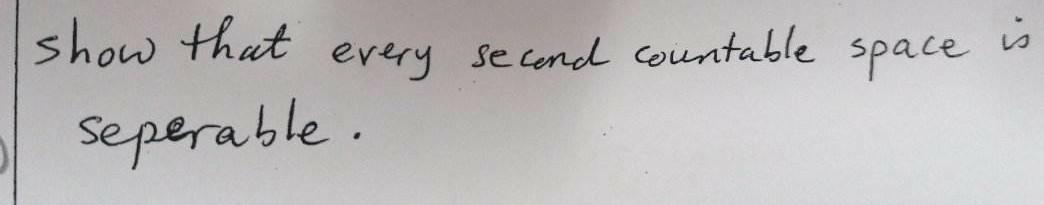 show that every second countable space is
seperable.